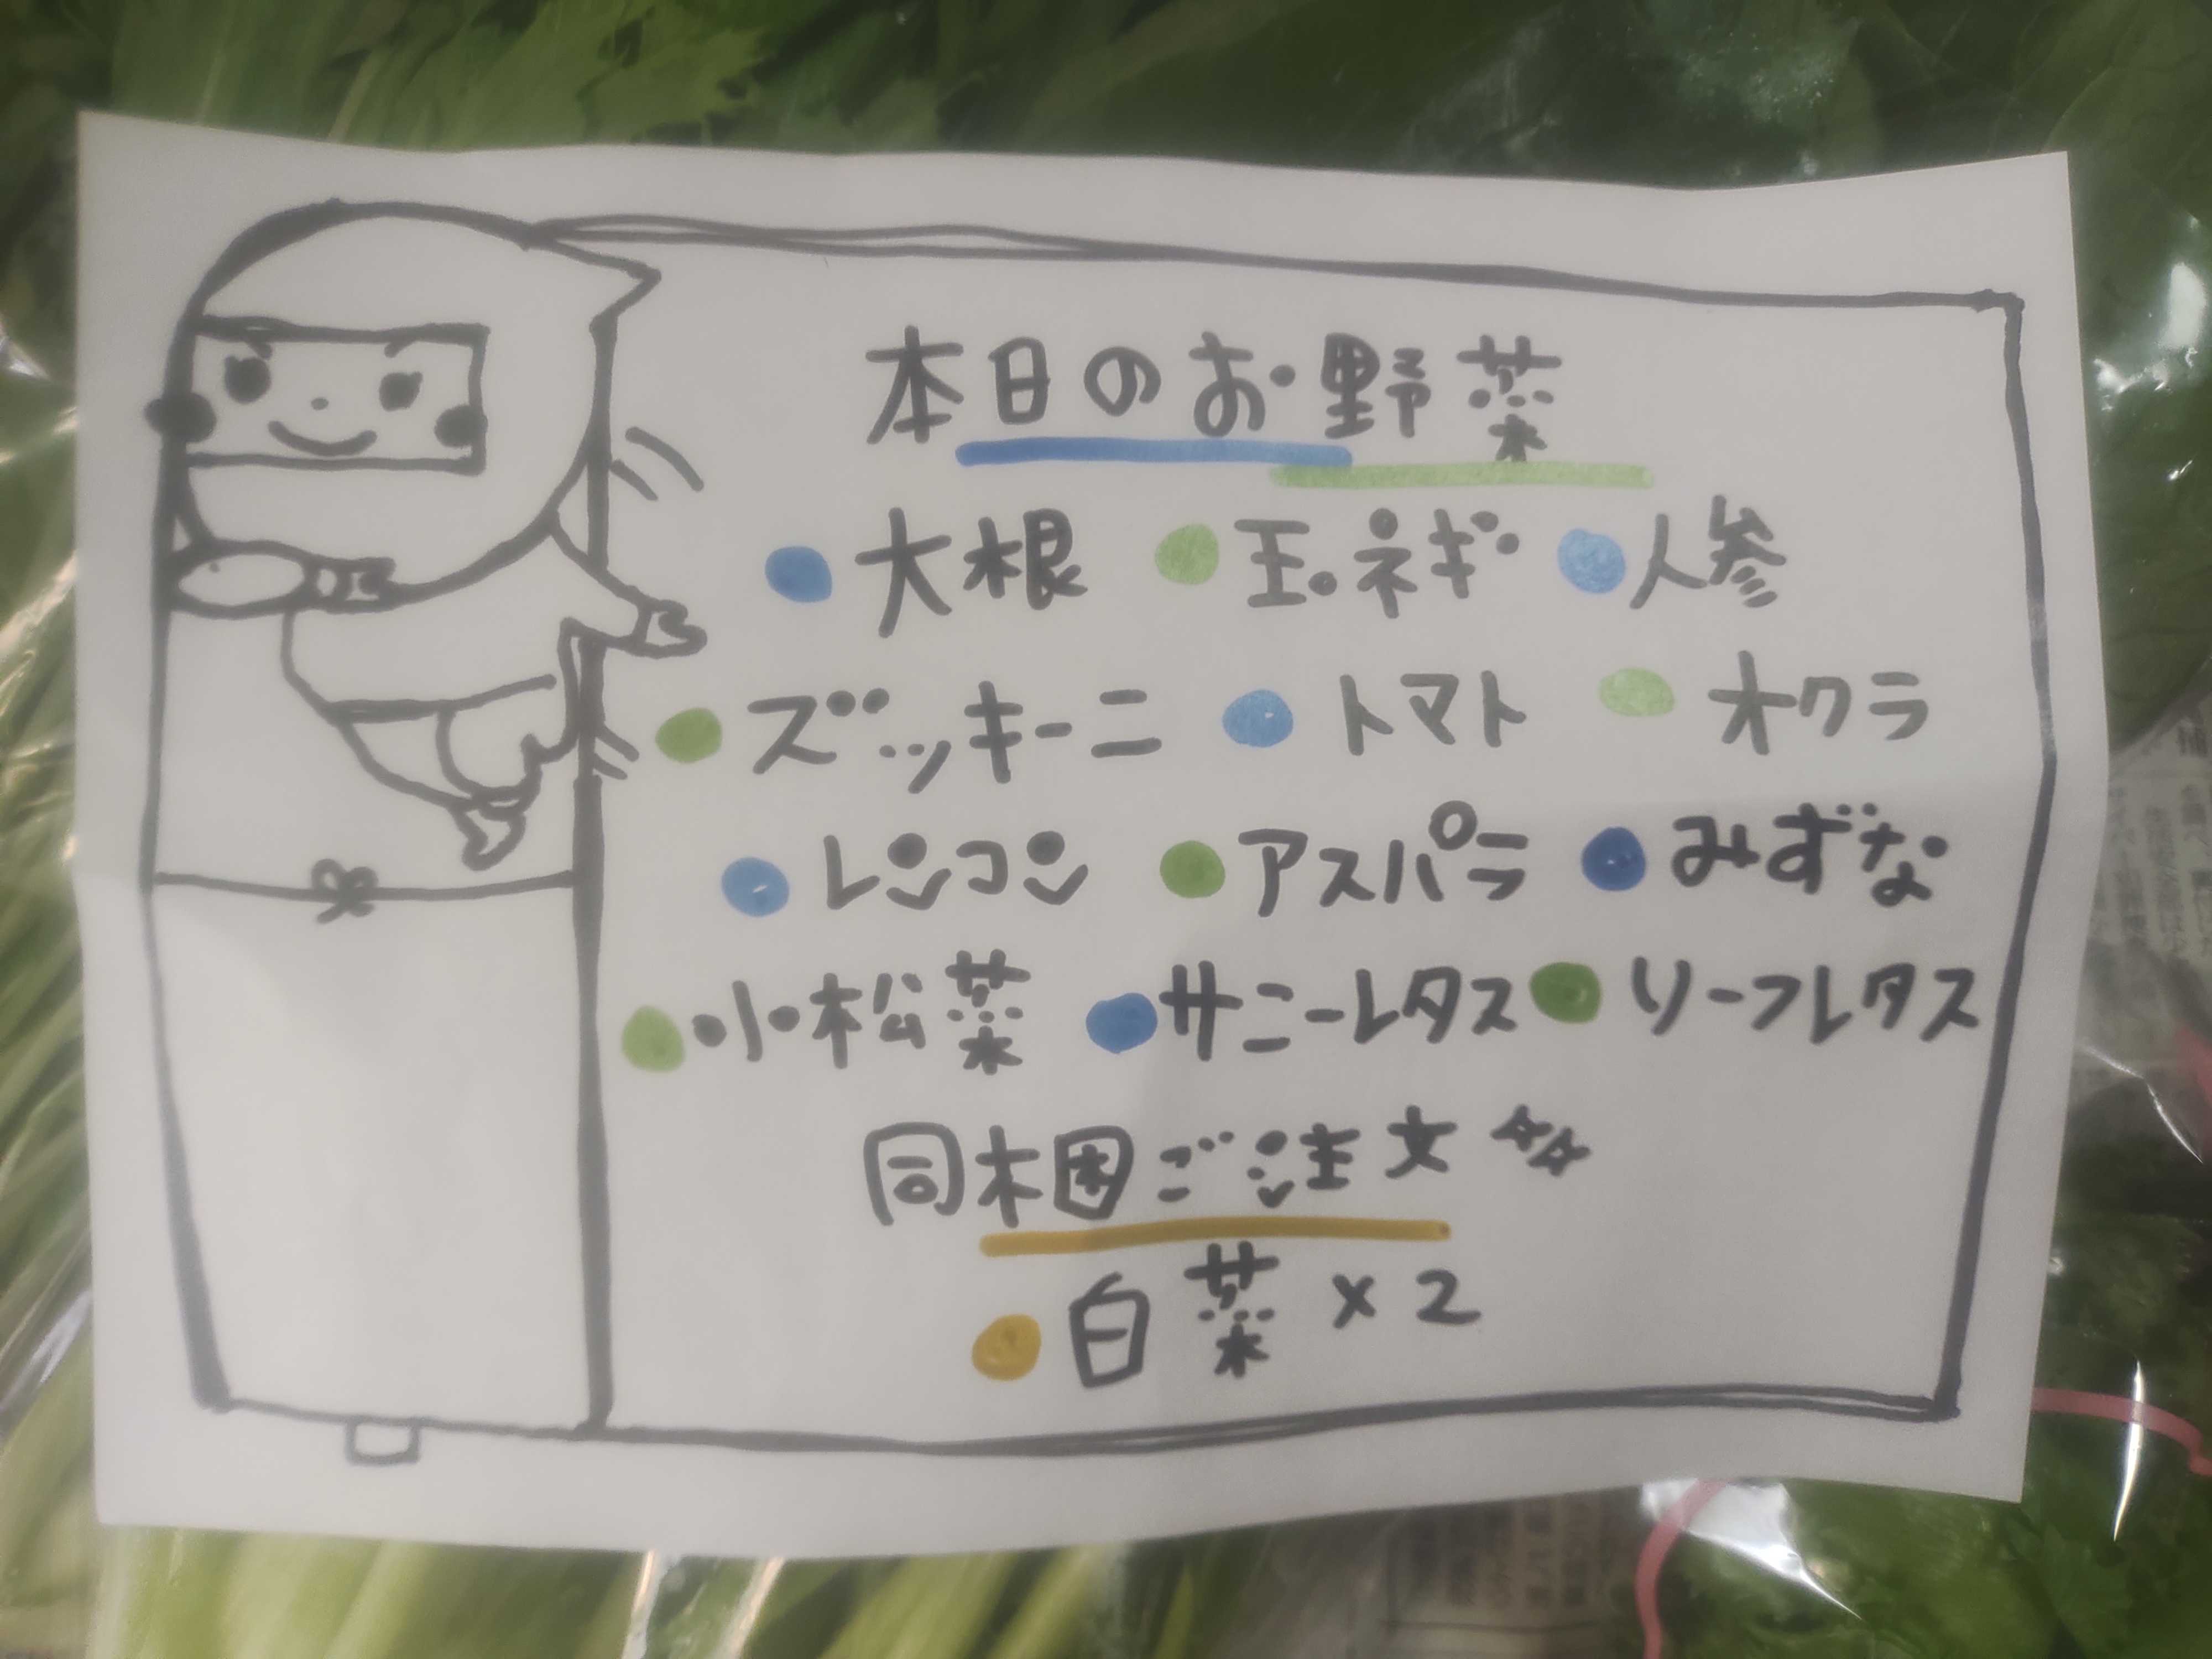 本日のお野菜
●大根 ●玉ネギ ●人参
●ズッキーニ ●トマト ●オクラ
●レンコン ●アスパラ ●みずな
●小松菜 ●サニーレタス ●リーフレタス
同梱ご注文☆☆
●白菜×2